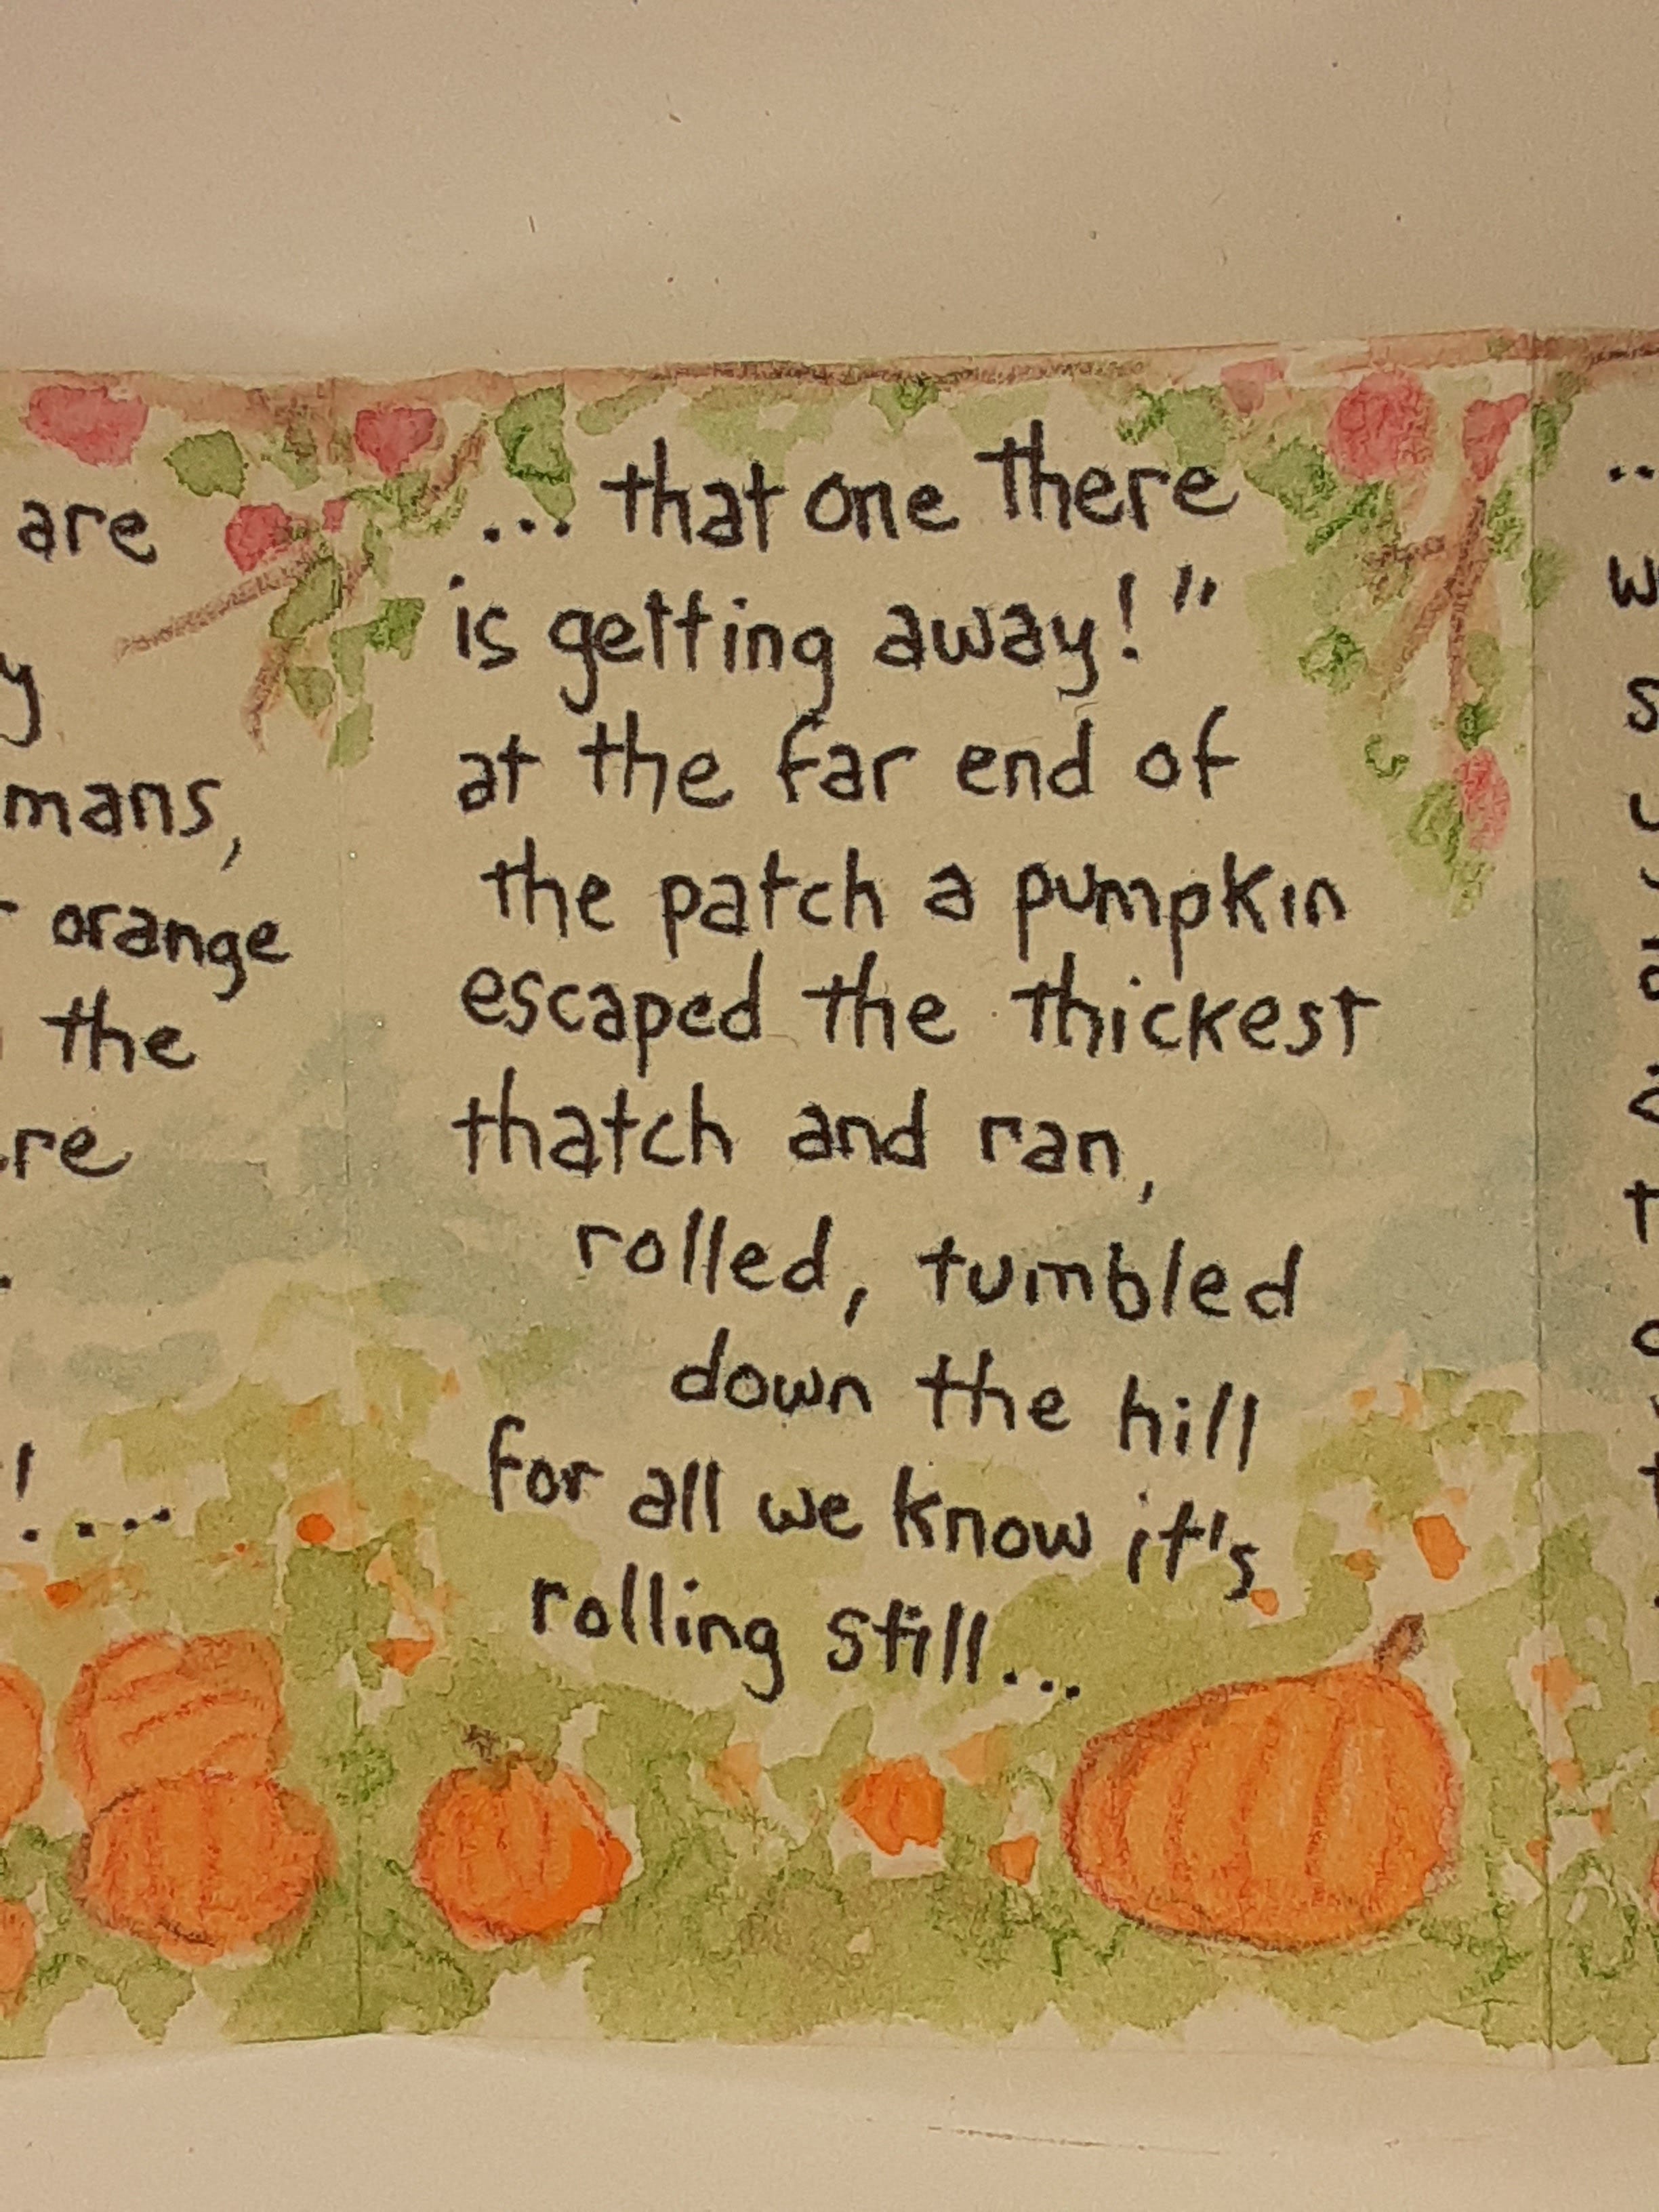 are
y
mans,
orange
the
re
.
!....
... that one there
is getting away!"
at the far end of
the patch a pumpkin
escaped the thickest
thatch and ran,
rolled, tumbled
down the hill
for all we know it's
rolling still...
..
w
s